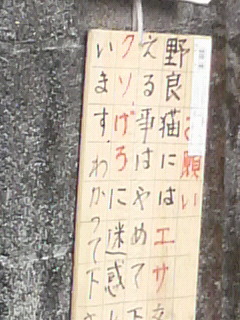 お願い
野良猫にはエサを
える事はやめて下
クソ、げろに迷惑し
います。わかって下さ